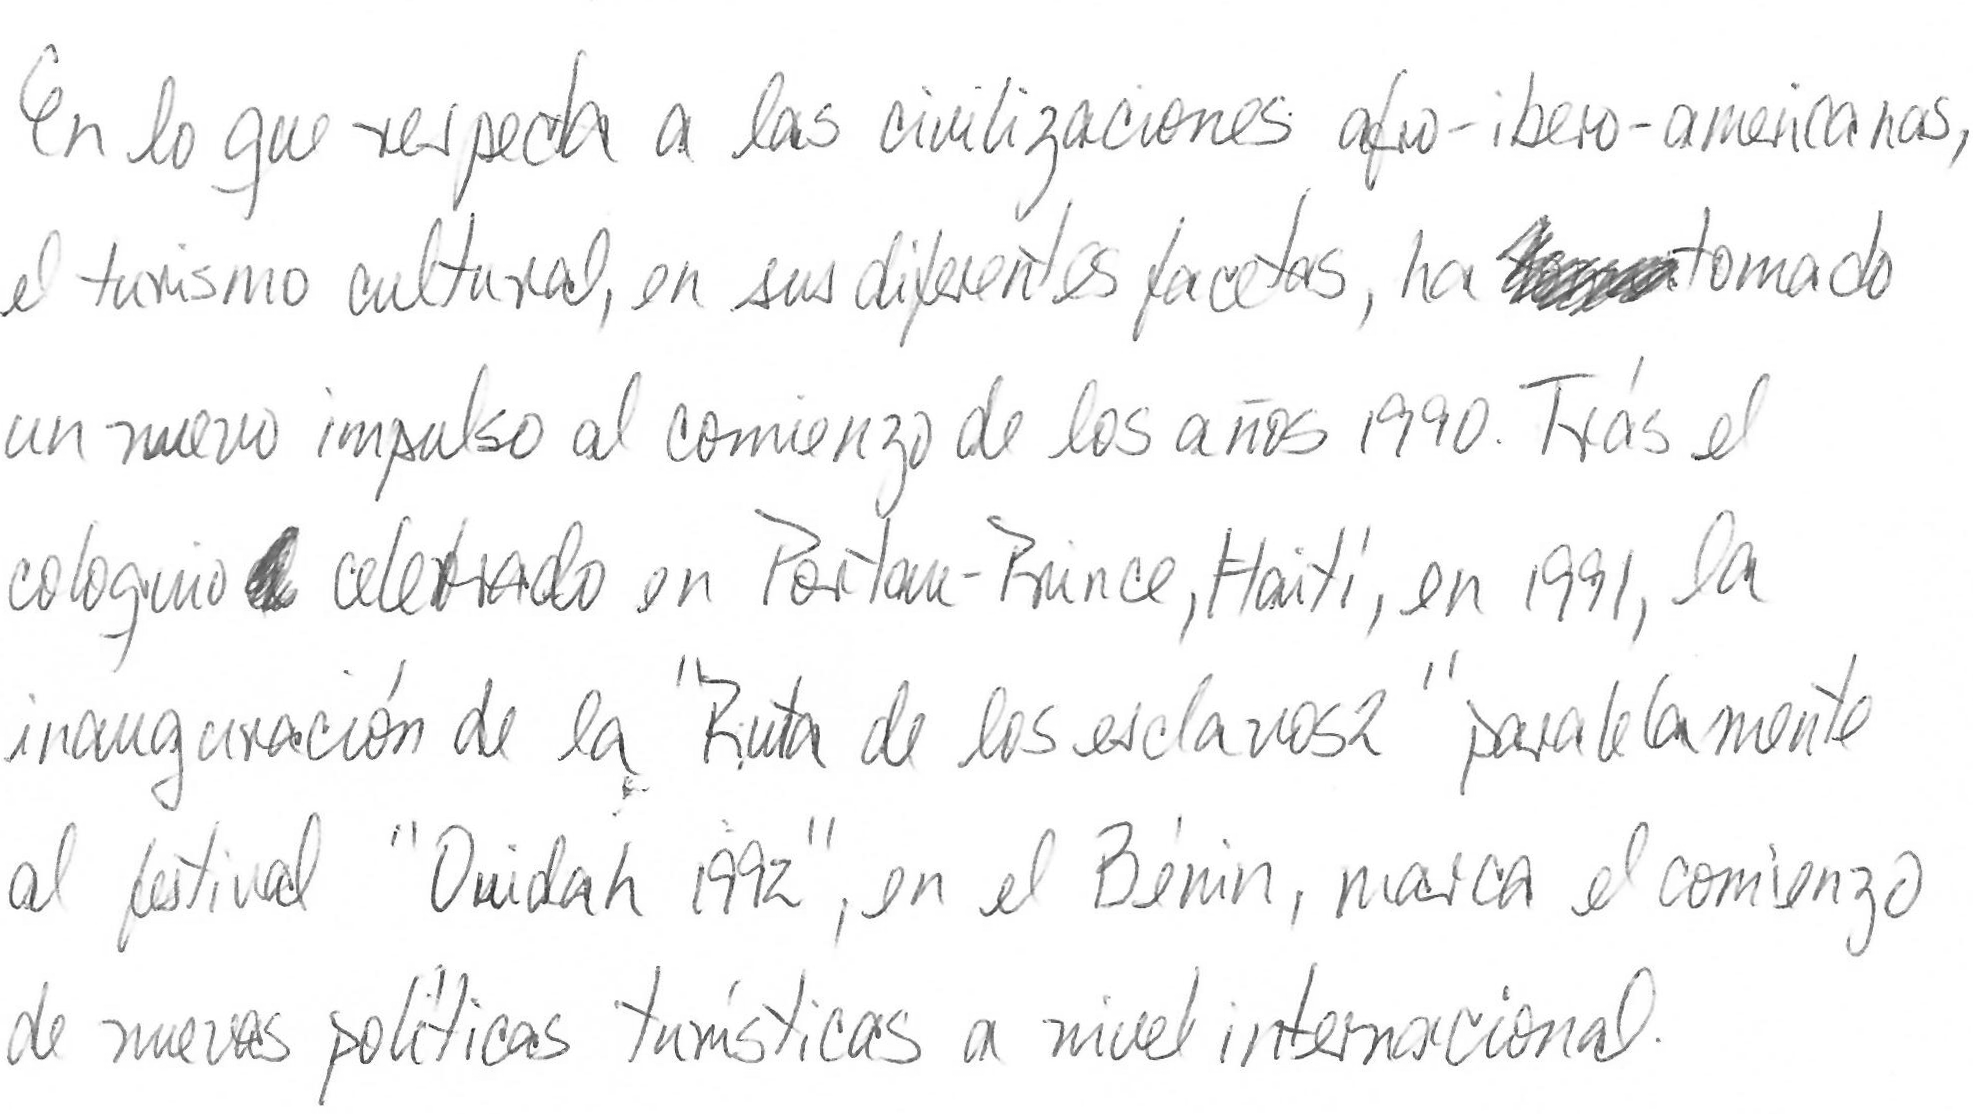 En lo que respecta a las civilizaciones afro-ibero-americanas,
el turismo cultural, en sus diferentes facetas, ha tomado
un nuevo impulso al comienzo de los años 1990. Trás el
coloquio celebrado en Portau-Prince, Haití, en 1991, la
inauguración de la "Ruta de los esclavos2" paralelamente
al festival "Ouidah 1992", en el Bénin, marca el comienzo
de nuevas políticas turísticas a nivel internacional.